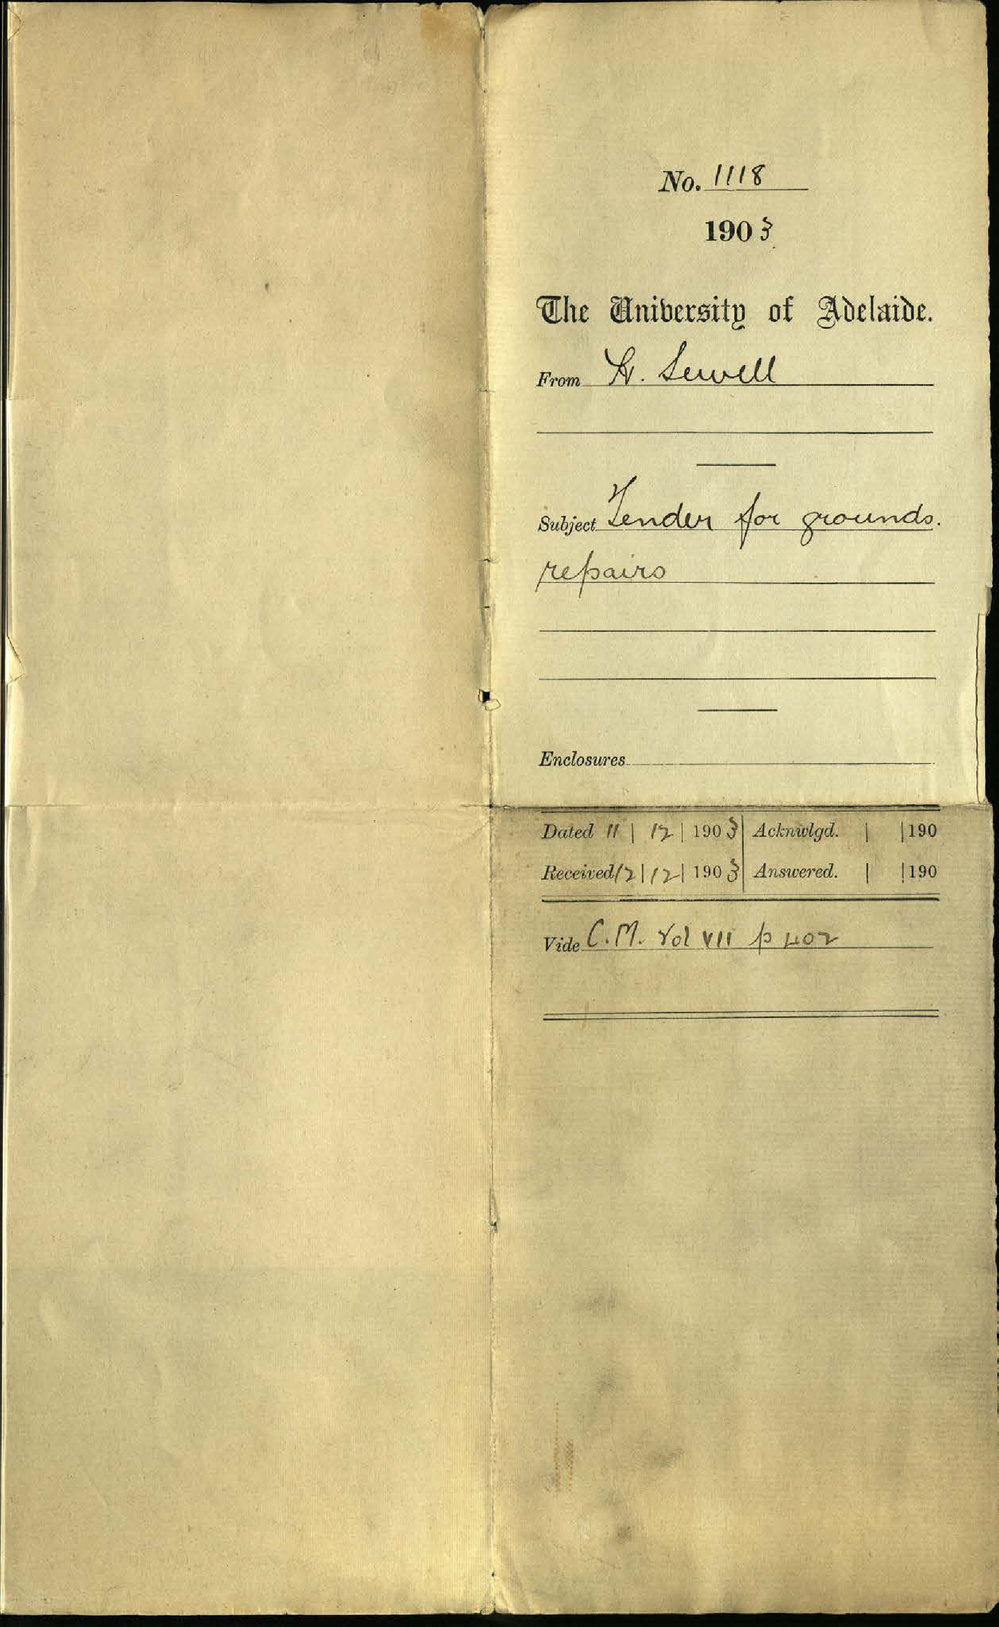 No. 1118
1903
The University of Adelaide.
From H. Sewell
Subject Tender for grounds.
repairs
Enclosures
Dated 11 | 12 | 1903 Acknwlgd. | | 190
Received 12 | 12 | 1903 Answered. | | 190
Vide C.M. Vol VII p 402